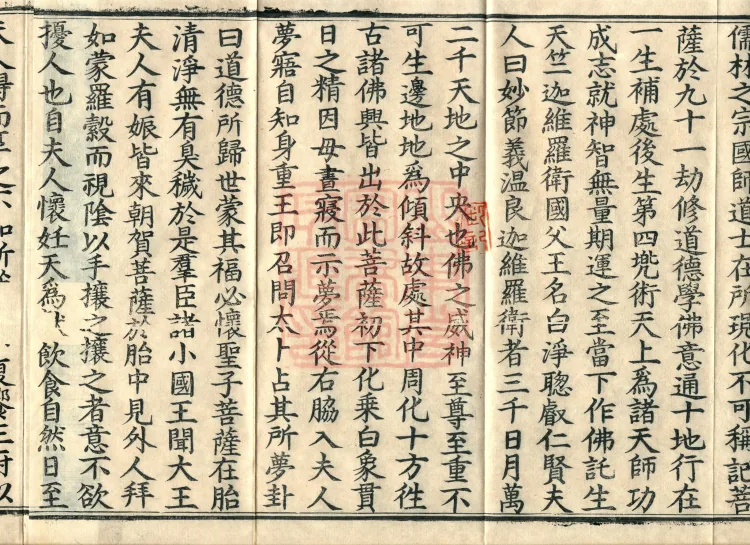 儒林之宗國師道士在所現化不可稱記菩
薩於九十一劫修道德學佛意通十地行在
一生補處後生第四兠術天上爲諸天師功
成志就神智無量期運之至當下作佛託生
天竺迦維羅衛國父王名白淨聦叡仁賢夫
人曰妙節義温良迦維羅衛者三千日月萬
二千天地之中央也佛之威神至尊至重不
可生邊地地爲傾斜故處其中周化十方徃
古諸佛興皆出於此菩薩初下化乘白象貫
日之精因毋晝寢而示夢焉從右脇入夫人
夢寤自知身重王即召問太卜占其所夢卦
曰道德所歸世蒙其福必懷聖子菩薩在胎
清淨無有臭穢於是羣臣諸小國王聞大王
夫人有娠皆來朝賀菩薩於胎中見外人拜
如蒙羅縠而視陰以手攘之攘之者意不欲
擾人也自夫人懷妊天爲飲食自然日至